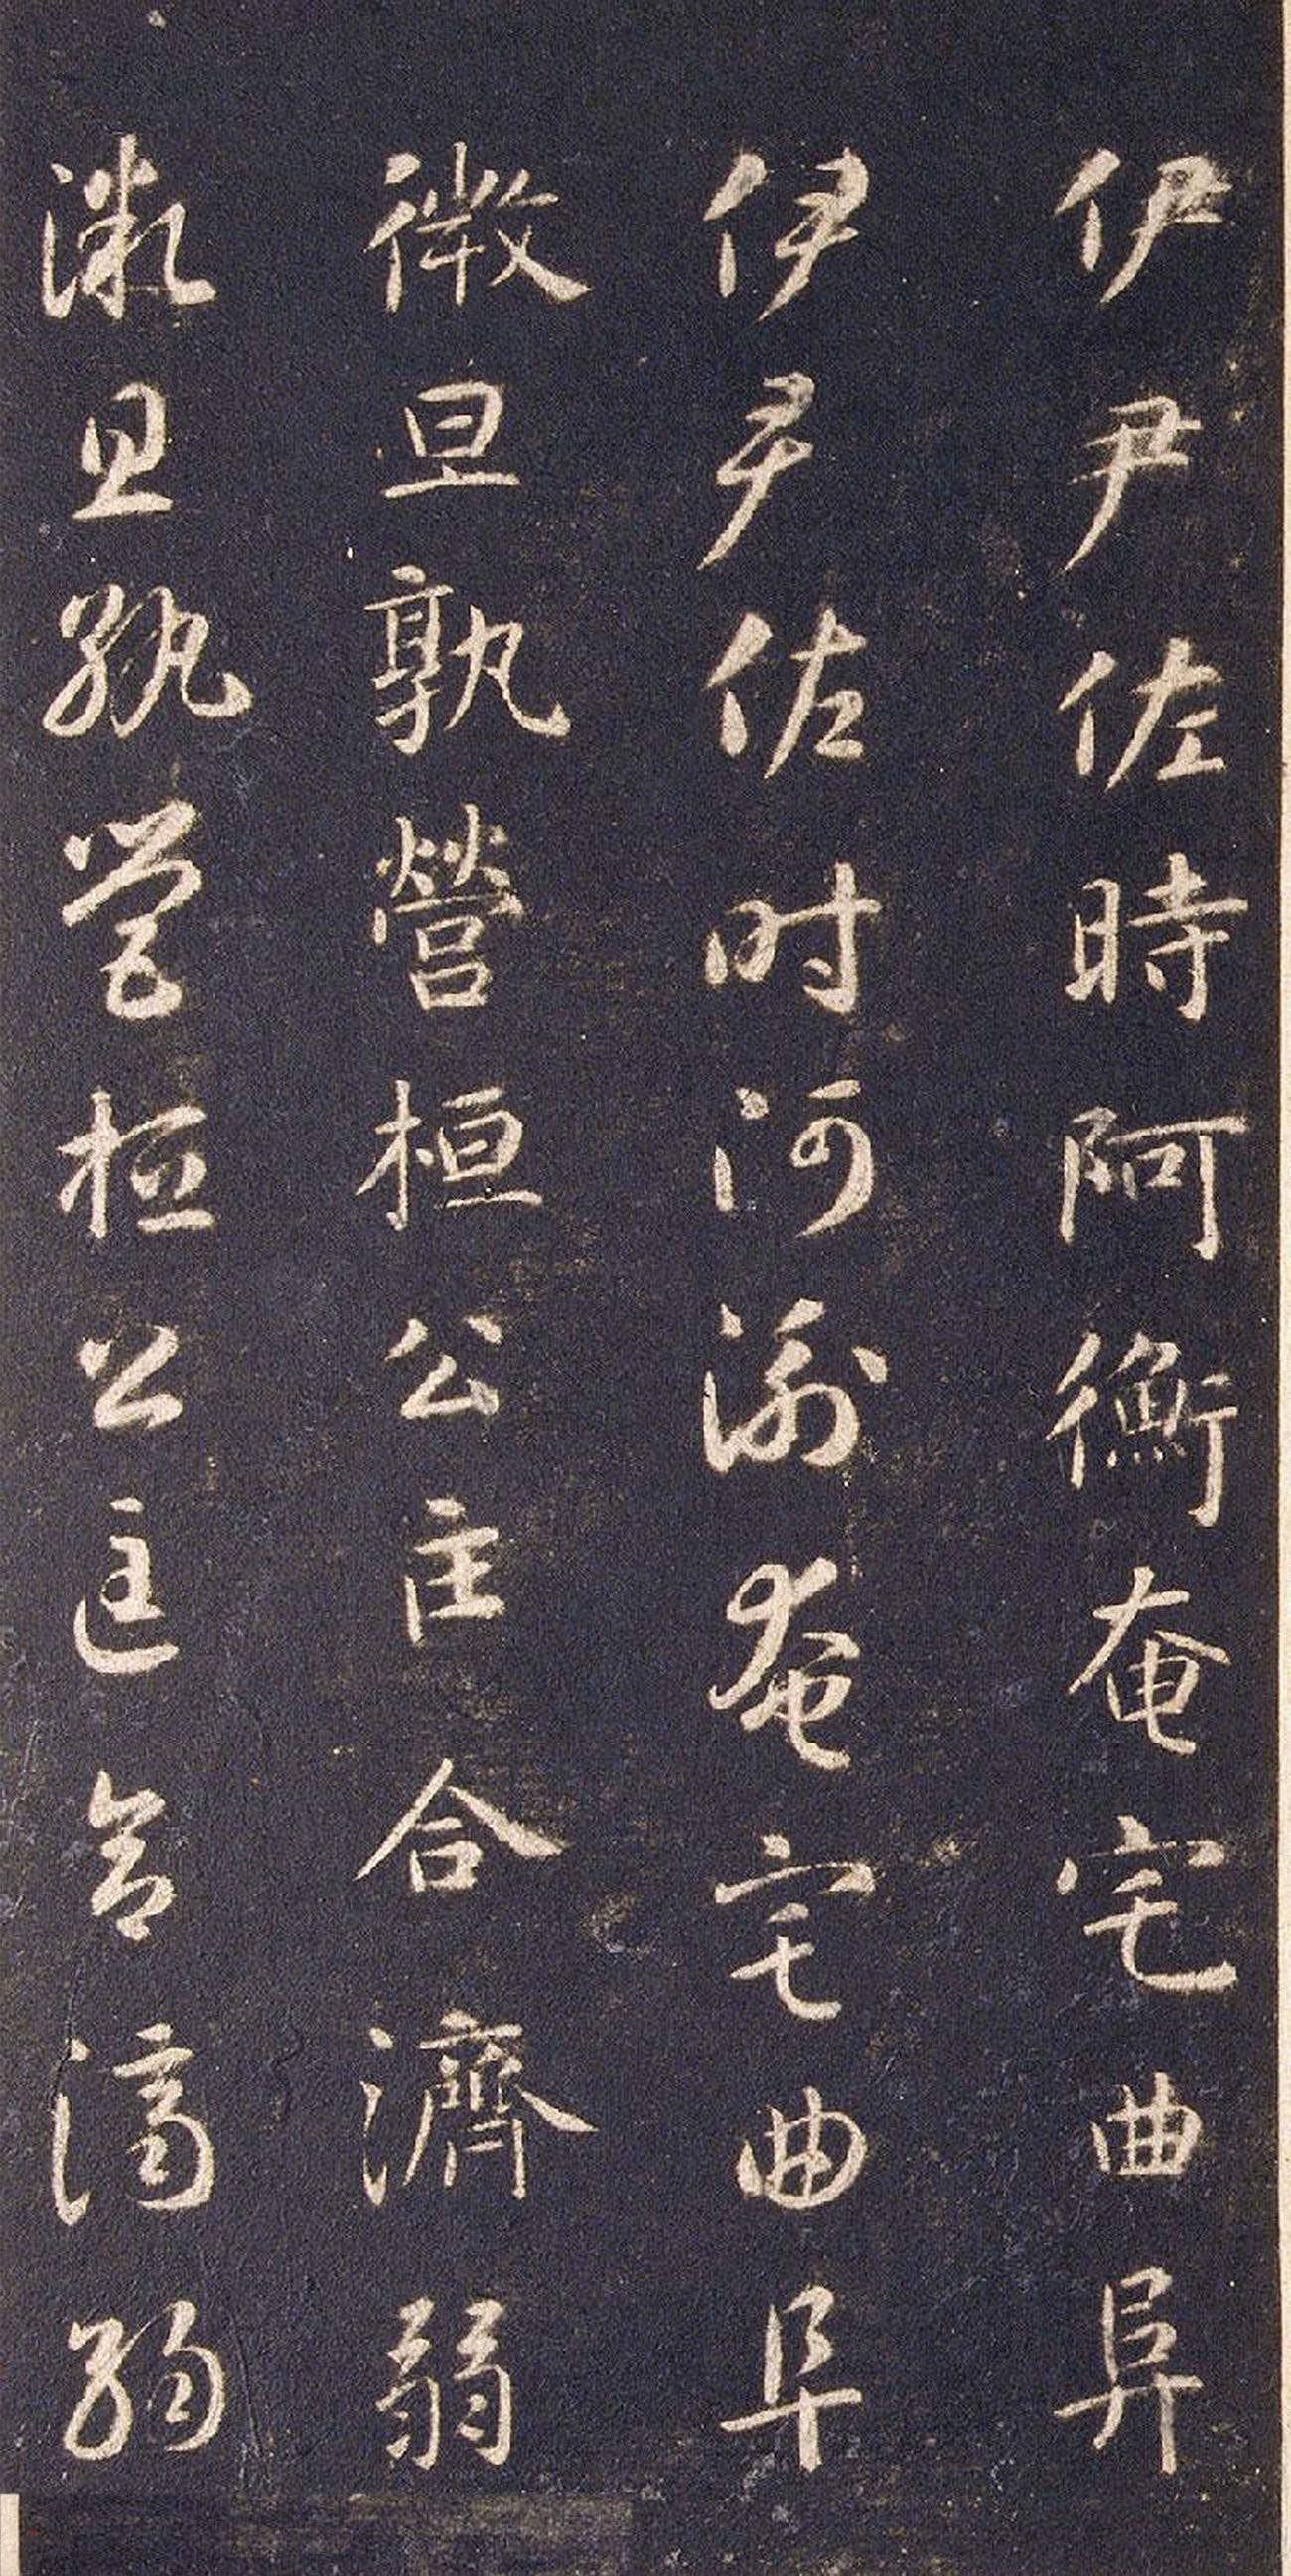 伊尹佐時阿衡奄宅曲阜
伊尹佐时阿衡奄宅曲阜
微旦孰營桓公匡合濟弱
微旦孰營桓公匡合濟弱